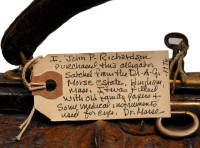 I, John P. Richardson
purchased this alligator
Satchel from the D.A.G.
Morse estate, Hingham
Mass. It was filled
with old family papers &
Some medical instruments
used for eyes. Dr. Morse